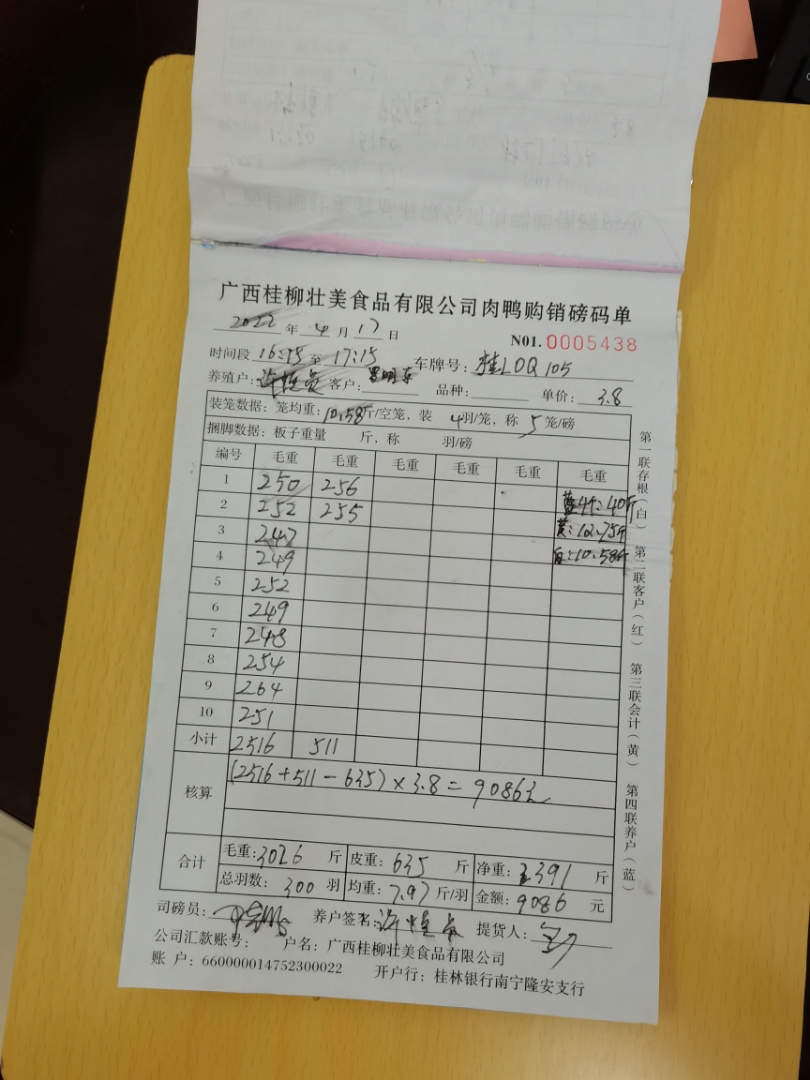 广西桂柳壮美食品有限公司肉鸭购销磅码单
2022 年 4 月 17 日 N01. 0005438
时间段 16:15 至 17:15 车牌号: 桂L0Q105
养殖户: 客户: 品种: 单价: 3.8
装笼数据: 笼均重: 10.58 斤/空笼, 装 4 羽/笼, 称 5 笼/磅
捆脚数据: 板子重量 斤, 称 羽/磅
编号 毛重 毛重 毛重 毛重 毛重 毛重
1 250 256
2 252 255 蓝44:40斤
3 247 黄:12.75斤
4 249 白:10.58斤
5 252
6 249
7 248
8 254
9 264
10 251
小计 2516 511
核算 (2516+511-635)×3.8=9086元
合计 毛重: 3026 斤 皮重: 635 斤 净重: 2391 斤
总羽数: 300 羽 均重: 7.97 斤/羽 金额: 9086 元
司磅员: 养户签名: 提货人:
公司汇款账号: 户名: 广西桂柳壮美食品有限公司
账 户: 660000014752300022 开户行: 桂林银行南宁隆安支行
第一联存根(白) 第二联客户(红) 第三联会计(黄) 第四联养户(蓝)